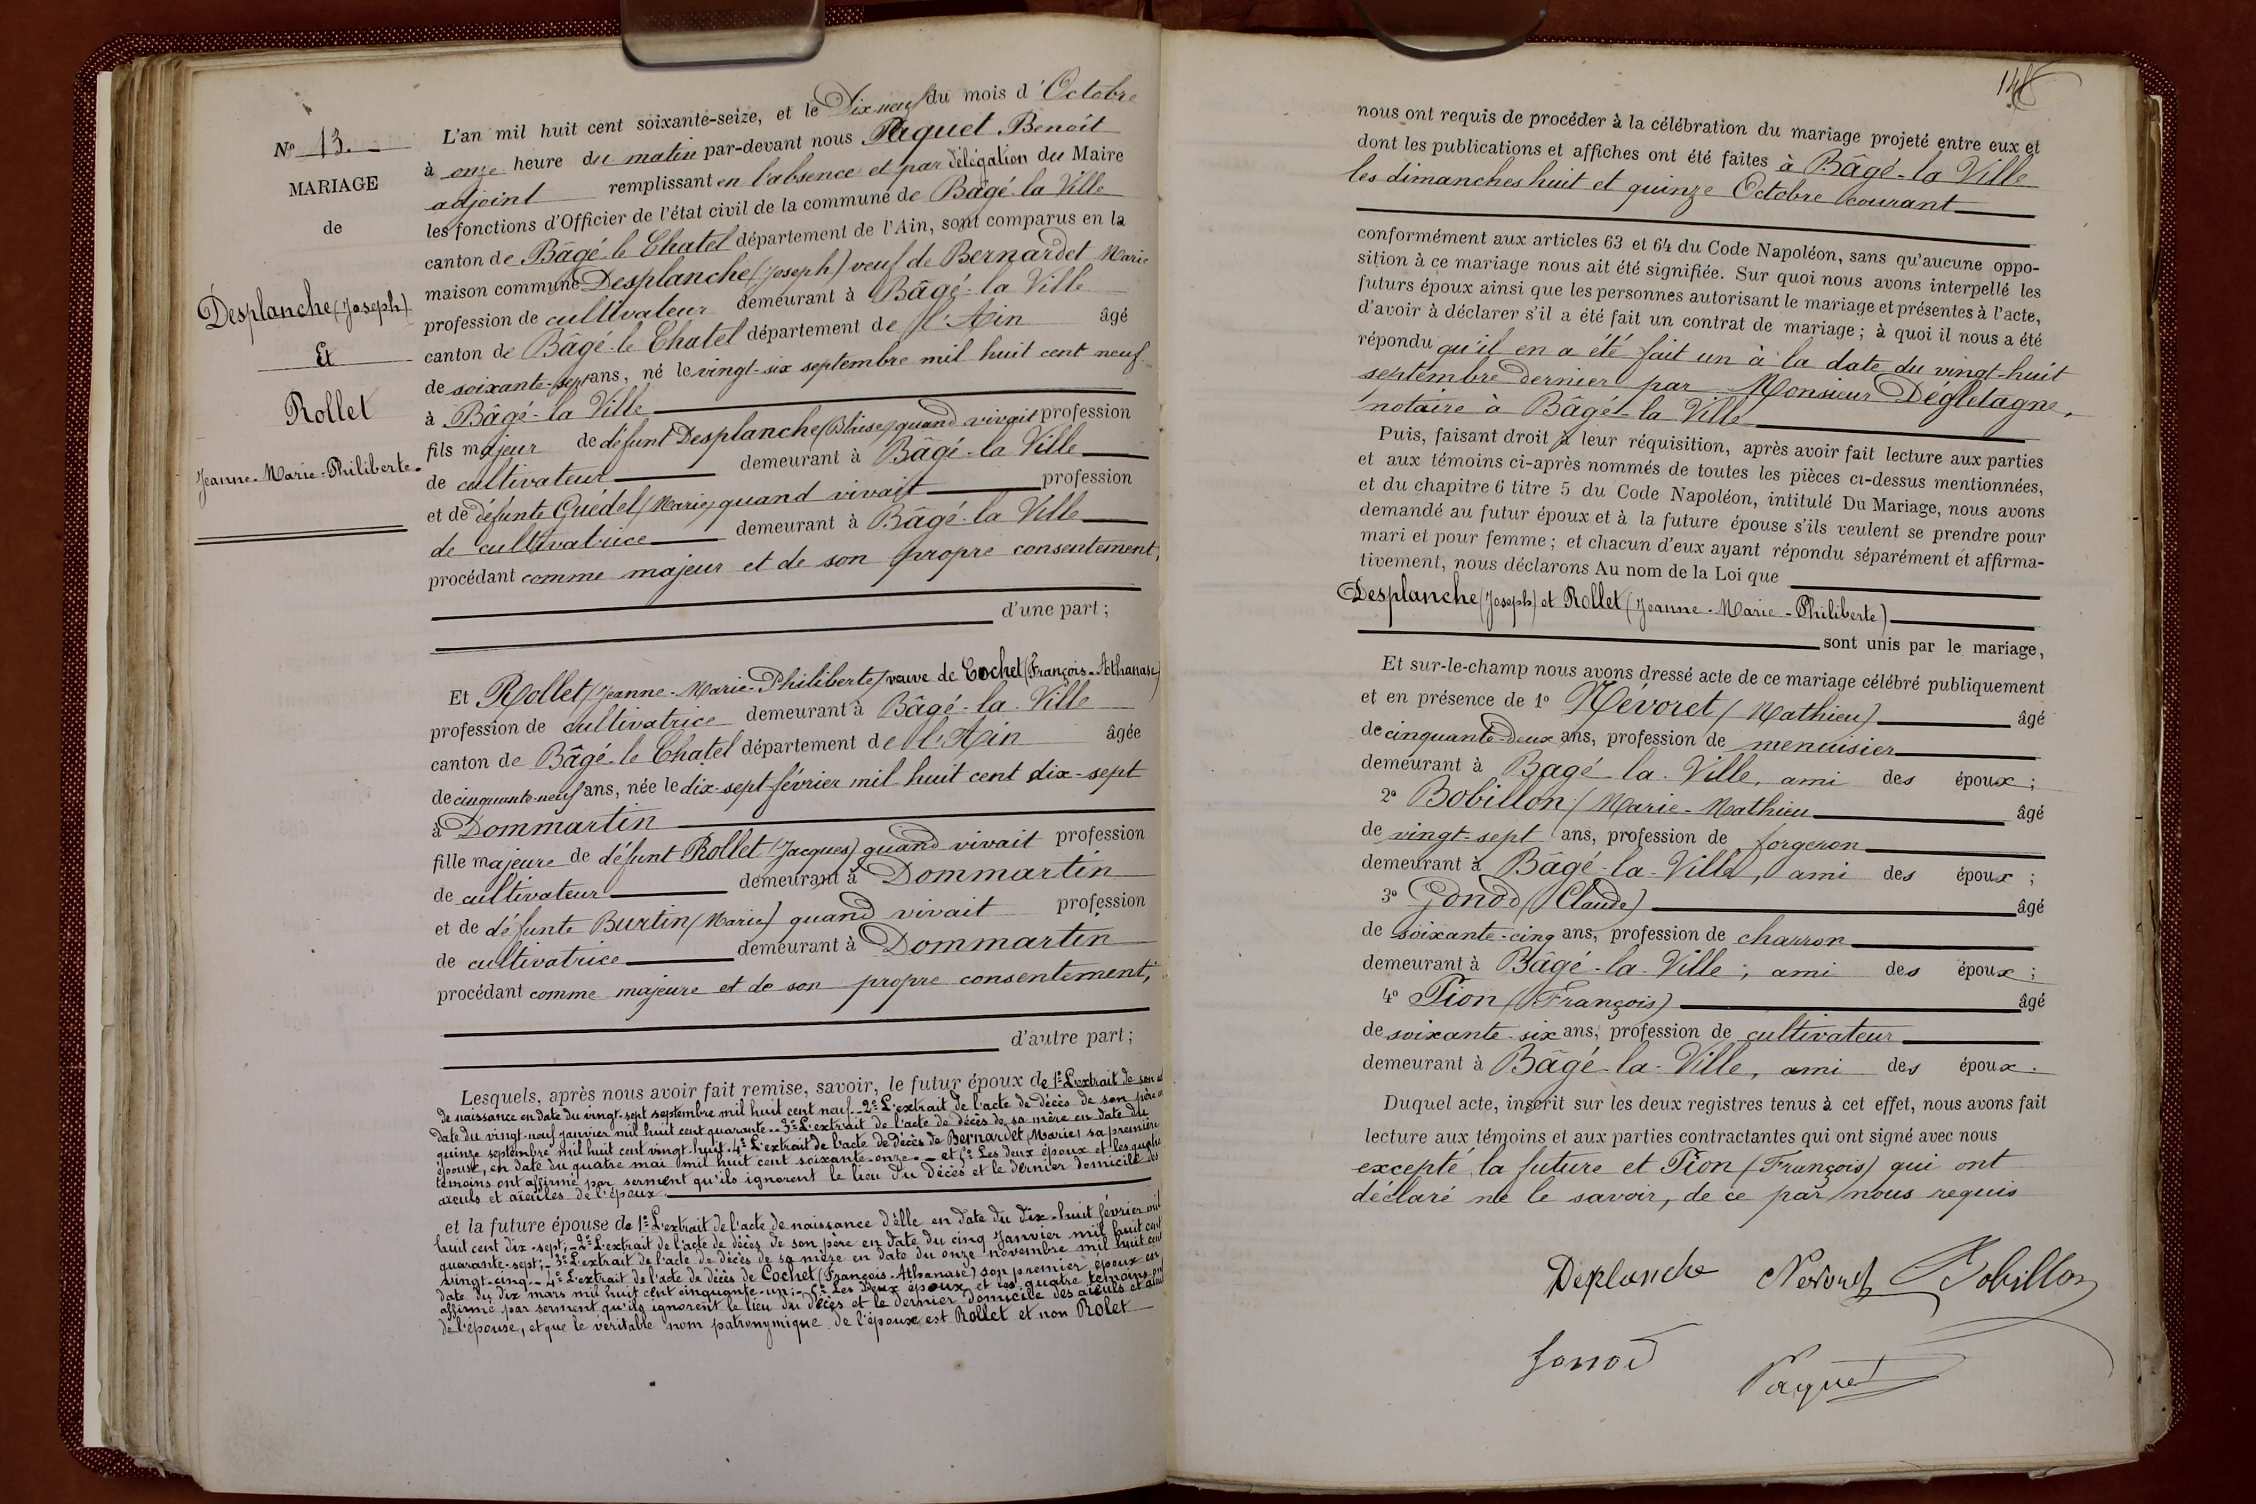 N° 13.
MARIAGE
de
Desplanche (Joseph)
Et
Rollet
Jeanne-Marie-Philiberte
L'an mil huit cent soixante-seize, et le Dix neuf du mois d'Octobre
à onze heure du matin par-devant nous Paquet Benoît
adjoint remplissant en l'absence et par délégation du Maire
les fonctions d'Officier de l'état civil de la commune de Bâgé-la Ville
canton de Bâgé-le Chatel département de l'Ain, sont comparus en la
maison commune Desplanche (Joseph) veuf de Bernardet Marie
profession de cultivateur demeurant à Bâgé-la Ville
canton de Bâgé-le Chatel département de l'Ain âgé
de soixante-sept ans, né le vingt-six septembre mil huit cent neuf
à Bâgé-la Ville
fils majeur de défunt Desplanche (Blaise) quand vivait profession
de cultivateur demeurant à Bâgé-la Ville
et de défunte Guédel (Marie) quand vivait profession
de cultivatrice demeurant à Bâgé-la Ville
procédant comme majeur et de son propre consentement,
d'une part;
Et Rollet (Jeanne-Marie-Philiberte) veuve de Cochet (François-Athanase)
profession de cultivatrice demeurant à Bâgé-la-Ville
canton de Bâgé-le Chatel département de l'Ain âgée
de cinquante-neuf ans, née le dix-sept février mil huit cent dix-sept
à Dommartin
fille majeure de défunt Rollet (Jacques) quand vivait profession
de cultivateur demeurant à Dommartin
et de défunte Burtin (Marie) quand vivait profession
de cultivatrice demeurant à Dommartin
procédant comme majeure et de son propre consentement,
d'autre part;
Lesquels, après nous avoir fait remise, savoir, le futur époux de 1° L'extrait de son
de naissance en date du vingt-sept septembre mil huit cent neuf - 2° L'extrait de l'acte de décès de son père en
date du vingt-neuf janvier mil huit cent quarante - 3° L'extrait de l'acte de décès de sa mère en date du
quinze septembre mil huit cent vingt-huit - 4° L'extrait de l'acte de décès de Bernardet (Marie) sa première
épouse, en date du quatre mai mil huit cent soixante-onze - et 5° Les deux époux et les quatre
témoins ont affirmé par serment qu'ils ignorent le lieu du décès et le dernier domicile des
aieuls et aieules de l'époux
et la future épouse de 1° L'extrait de l'acte de naissance d'elle en date du dix-huit février mil
huit cent dix-sept; - 2° L'extrait de l'acte de décès de son père en date du cinq Janvier mil huit cent
quarante-sept; - 3° L'extrait de l'acte de décès de sa mère en date du onze novembre mil huit cent
vingt-cinq - 4° L'extrait de l'acte de décès de Cochet (François-Athanase) son premier époux en
date du dix mars mil huit cent cinquante-un; - 5° Les deux époux et les quatre témoins ont
affirmé par serment qu'ils ignorent le lieu du décès et le dernier domicile des aieuls et
de l'épouse, et que le véritable nom patronymique de l'épouse est Rollet et non Rolet
148
nous ont requis de procéder à la célébration du mariage projeté entre eux et
dont les publications et affiches ont été faites à Bâgé-la Ville
les dimanches huit et quinze Octobre courant
conformément aux articles 63 et 64 du Code Napoléon, sans qu'aucune oppo-
sition à ce mariage nous ait été signifiée. Sur quoi nous avons interpellé les
futurs époux ainsi que les personnes autorisant le mariage et présentes à l'acte,
d'avoir à déclarer s'il a été fait un contrat de mariage; à quoi il nous a été
répondu qu'il en a été fait un à la date du vingt-huit
septembre dernier par Monsieur Dégletagne,
notaire à Bâgé-la Ville
Puis, faisant droit à leur réquisition, après avoir fait lecture aux parties
et aux témoins ci-après nommés de toutes les pièces ci-dessus mentionnées,
et du chapitre 6 titre 5 du Code Napoléon, intitulé Du Mariage, nous avons
demandé au futur époux et à la future épouse s'ils veulent se prendre pour
mari et pour femme; et chacun d'eux ayant répondu séparément et affirma-
tivement, nous déclarons Au nom de la Loi que
Desplanche (Joseph) et Rollet (Jeanne-Marie-Philiberte)
sont unis par le mariage,
Et sur-le-champ nous avons dressé acte de ce mariage célébré publiquement
et en présence de 1° Névoret (Mathieu) âgé
de cinquante-deux ans, profession de menuisier
demeurant à Bagé-la-Ville, ami des époux;
2° Bobillon (Marie-Mathieu âgé
de vingt-sept ans, profession de forgeron
demeurant à Bâgé-la-Ville, ami des époux;
3° Gonod (Claude) âgé
de soixante-cinq ans, profession de charron
demeurant à Bâgé-la-Ville; ami des époux;
4° Pion (François) âgé
de soixante-six ans, profession de cultivateur
demeurant à Bâgé-la-Ville, ami des époux.
Duquel acte, inscrit sur les deux registres tenus à cet effet, nous avons fait
lecture aux témoins et aux parties contractantes qui ont signé avec nous
excepté la future et Pion (François) qui ont
déclaré ne le savoir, de ce par nous requis
Deplanche Nevoret Bobillon
Gonod Paquet